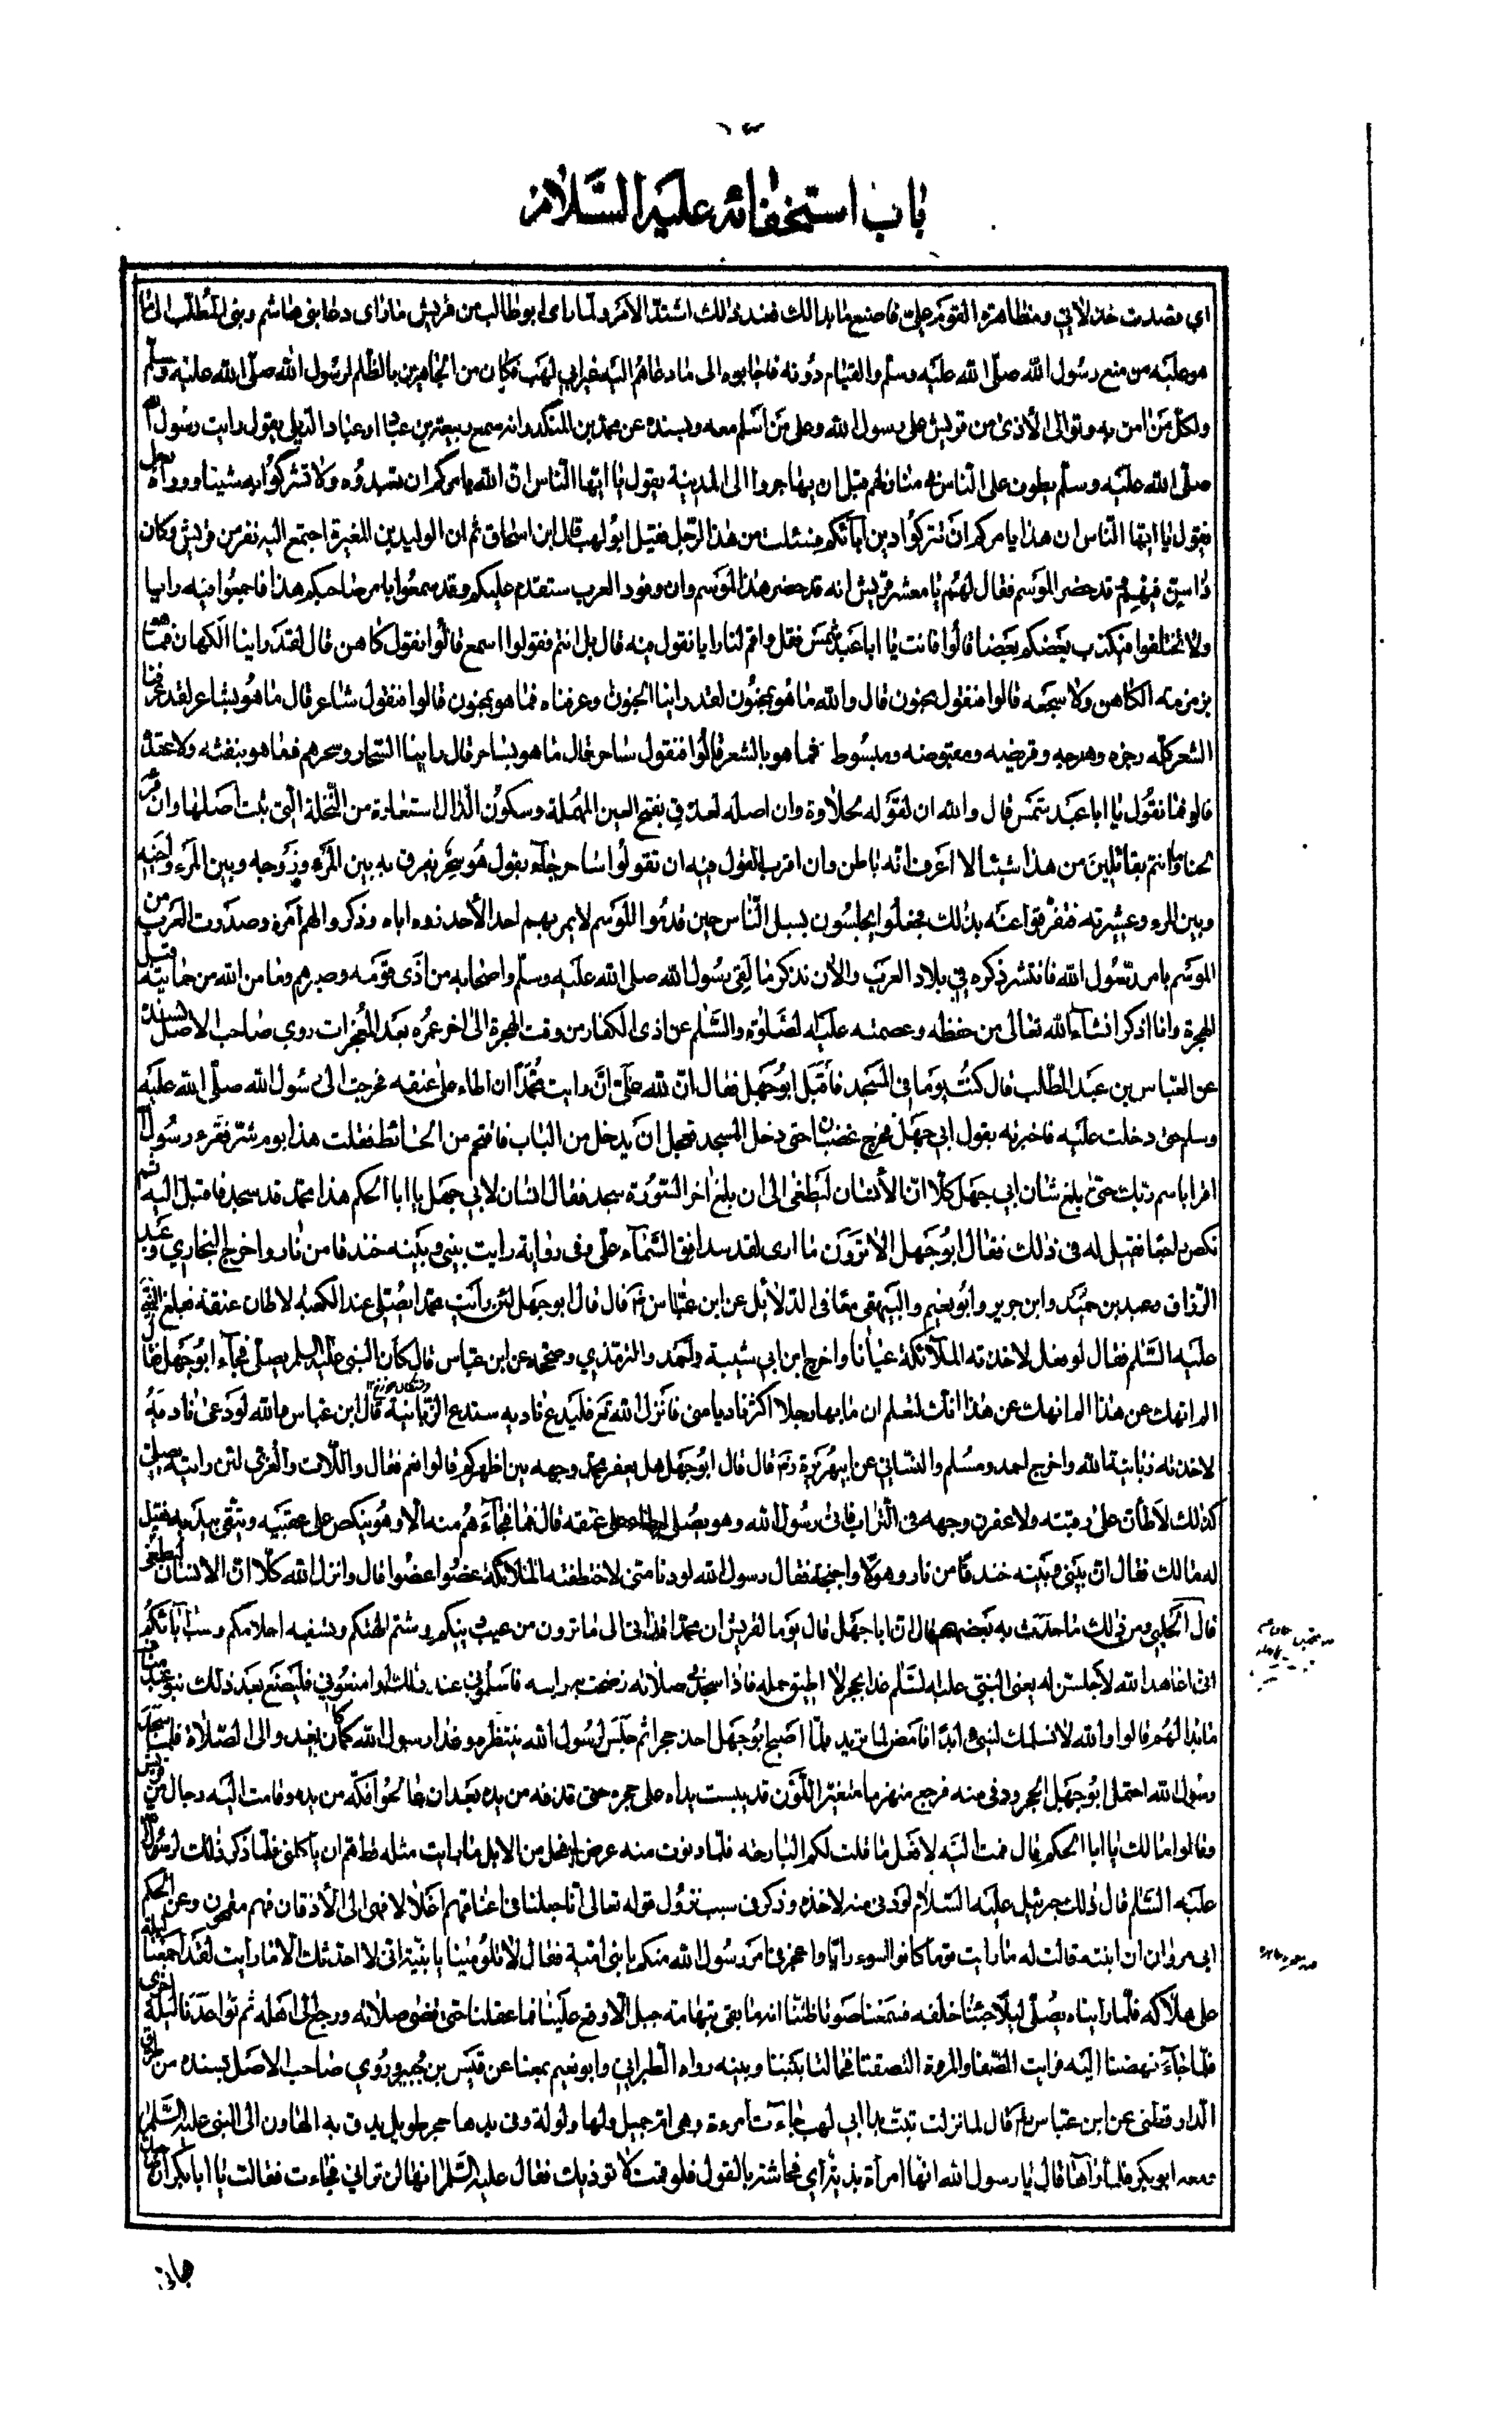 باب استخفائه عليه السلام
اي قصدت خذلاني ومظاهرة القوم علي فاصنع ما بدالك فعند ذلك اشتد الامر ولما راى ابو طالب من قريش ما راى دعا بني هاشم وبني المطلب الى ما
هو عليه من منع رسول الله صلى الله عليه وسلم والقيام دونه فاجابوه الى ما دعاهم اليه غير ابي لهب فكان من المجاهرين بالظلم لرسول الله صلى الله عليه وسلم
ولكل من امن به وتوالى الأذى من قريش على رسول الله وعلى من اسلم معه وبسنده عن محمد بن المنكدر انه سمع ربيعة بن عباد او عباد الديلي يقول رايت رسول الله
صلى الله عليه وسلم يطوف على الناس في منازلهم قبل ان يهاجروا الى المدينة يقول يا ايها الناس ان الله يامركم ان تعبدوه ولا تشركوا به شيئا ووراه رجل
يقول يا ايها الناس ان هذا يامركم ان تتركوا دين آبائكم فسئلت من هذا الرجل فقيل ابو لهب قال ابن اسحاق ثم ان الوليد بن المغيرة اجتمع اليه نفر من قريش وكان
ذا سن فيهم قد حضر الموسم فقال لهم يا معشر قريش انه قد حضر هذا الموسم وان وفود العرب ستقدم عليكم وقد سمعوا بامر صاحبكم هذا فاجمعوا فيه رايا
ولا تختلفوا فيكذب بعضكم بعضا قالوا فانت يا ابا عبد شمس فقل واقم لنا رايا نقول فيه قال بل انتم فقولوا اسمع قالوا نقول كاهن قال لقد راينا الكهان فما هو
بزمزمة الكاهن ولا سجعه قالوا فنقول مجنون قال والله ما هو بمجنون لقد راينا الجنون وعرفناه فما هو بمجنون قالوا فنقول شاعر قال ما هو بشاعر لقد عرفنا
الشعر كله رجزه وهزجه وقريضه ومقبوضه ومبسوطه فما هو بالشعر قالوا فنقول ساحر قال ما هو بساحر قال راينا السحار وسحرهم فما هو بنفثه ولا عقده
قالوا فما نقول يا ابا عبد شمس قال والله ان لقوله لحلاوة وان اصله لعذق بفتح العين المهملة وسكون الذال استعارة من النخلة التي ثبت اصلها وان فرعه
لجناة وما انتم بقائلين من هذا شيئا الا اعرف انه باطل وان اقرب القول فيه ان تقولوا ساحر جاء بقول هو سحر يفرق به بين المرء وزوجه وبين المرء واخيه
وبين المرء وعشيرته فتفرقوا عنه بذلك فجعلوا يجلسون بسبل الناس حين قدموا الموسم لا يمر بهم احد الا حذروه اياه وذكروا لهم امره وصدرت العرب من
الموسم بامر رسول الله فانتشر ذكره في بلاد العرب والآن نذكر ما لقي رسول الله صلى الله عليه وسلم واصحابه من اذى قومه وصبرهم وما من الله من حمايته قبل
الهجرة وانا اذكر انشاء الله تعالى من حفظه وعصمته عليه الصلوة والسلم عن اذى الكفار من وقت الهجرة الى اخر عمره بعد المعجزات روي صاحب الاصل بسنده
عن العباس بن عبد المطلب قال كنت يوما في المسجد فاقبل ابو جهل فقال ان لله علي ان رايت محمدا ان اطاء على عنقه فخرجت الى رسول الله صلى الله عليه
وسلم حتى دخلت عليه فاخبرته بقول ابي جهل فخرج غضبان حتى دخل المسجد فعجل ان يدخل من الباب فاقتحم من الحائط فقلت هذا يوم شر فقرء رسول الله
اقرا باسم ربك حتى بلغ شان ابي جهل كلا ان الأنسان ليطغى الى ان بلغ اخر السورة سجد فقال انسان لابي جهل يا ابا الحكم هذا محمد قد سجد فاقبل اليه ثم
نكص راجعا فقيل له في ذلك فقال ابو جهل الا ترون ما ارى لقد سد افق السماء علي وفي رواية رايت بيني وبينه خندقا من نار واخرج البخاري وعبد
الرزاق وعبد بن حميد وابن جرير وابو نعيم والبيهقي معا في الدلائل عن ابن عباس رضم قال قال ابو جهل لئن رأيت محمدا يصلي عند الكعبة لاطان عنقه فبلغ النبي
عليه السلم فقال لو فعل لاخذته الملائكة عيانا واخرج ابن ابي شيبة واحمد والترمذي وصححه عن ابن عباس قال كان النبي عليه السلم يصلي فجاء ابو جهل فقال
الم انهك عن هذا الم انهك عن هذا انك لتعلم ان ما بها رجلا اكثر ناديا مني فانزل الله تع فليدع ناديه سندع الزبانية قال ابن عباس والله لو دعى ناديه
لاخذته زبانية الله واخرج احمد ومسلم والنسائي عن ابي هريرة رضم قال قال ابو جهل هل يعفر محمد وجهه بين اظهركم قالوا نعم فقال واللات والعزى لئن رايته يصلي
كذلك لاطأن على رقبته ولاعفرن وجهه في التراب فاتى رسول الله وهو يصلي ليطاء على عنقه قال فما فجاءهم منه الا وهو ينكص على عقبيه ويتقي بيديه فقيل
له مالك فقال ان بيني وبينه خندقا من نار وهولا واجنحة فقال رسول الله لو دنا مني لاختطفته الملائكة عضوا عضوا قال وانزل الله كلا ان الانسان ليطغى
قال الحلبي ومن ذلك ما حدث به بعضهم قال ان ابا جهل قال يوما لقريش ان محمدا قد اتى الى ما ترون من عيب دينكم وشتم الهتكم وتسفيه احلامكم وسب آبائكم
اني اعاهد الله لاجلسن له يعني النبي عليه السلم غدا بحجر لا اطيق حمله فاذا سجد في صلاته رضخت به راسه فاسلموني عند ذلك او امنعوني فليصنع بعد ذلك بنو عبد مناف
ما بدا لهم قالوا والله لا نسلمك لشيء ابدا فامض لما تريد فلما اصبح ابو جهل اخذ حجرا ثم جلس لرسول الله ينتظره وغدا رسول الله كما كان يغدو الى الصلاة فلما سجد
رسول الله احتمل ابو جهل الحجر ودنى منه فرجع منهزما متغير اللون قد يبست يداه على حجره حتى قذفه من يده بعد ان عالجوا فكه من يده وقامت اليه رجال من قريش
وقالوا مالك يا ابا الحكم قال قمت اليه لافعل ما قلت لكم البارحة فلما دنوت منه عرض لي فحل من الابل ما رايت مثله قط هم ان ياكلني فلما ذكر ذلك لرسول الله
عليه السلم قال ذلك جبرئيل عليه السلام لو دنى منه لاخذه وذكر في سبب نزول قوله تعالى انا جعلنا في اعناقهم اغلالا فهي الى الأذقان فهم مقمحون وعن الحكم
ابي مروان ان ابنته قالت له ما رايت قوما كانوا اسوء رايا واعجز في امر رسول الله منكم يا بني امية فقال لا تلومينا يا بنية اني لا احدثك الا ما رايت لقد اجمعنا ليلة
على هلاكه فلما رايناه يصلي ليلا جئنا خلفه فسمعنا صوتا ظننا انه ما بقي بتهامة جبل الا وقع علينا فما عقلنا حتى قضى صلاته ورجع الى اهله ثم تواعدنا ليلة اخرى
فلما جاء نهضنا اليه فرايت الصفا والمروة التصقتا فحالتا بيننا وبينه رواه الطبراني وابو نعيم بمعنا عن قيس بن جبير وروي صاحب الاصل بسنده من طرق
الدارقطني عن ابن عباس رضم قال لما نزلت تبت يدا ابي لهب جاءت امرءة وهي ام جميل ولها ولولة وفي يدها حجر طويل يدق به الهاون الى النبي عليه السلم
معه ابو بكر فلما راها قال يا رسول الله انها امرأة بذيئة اي فحاشة بالقول فلو قمت لا تؤذيك فقال عليه السلم انها لن تراني فجاءت فقالت يا ابا بكر ان صاحبك
هجاني